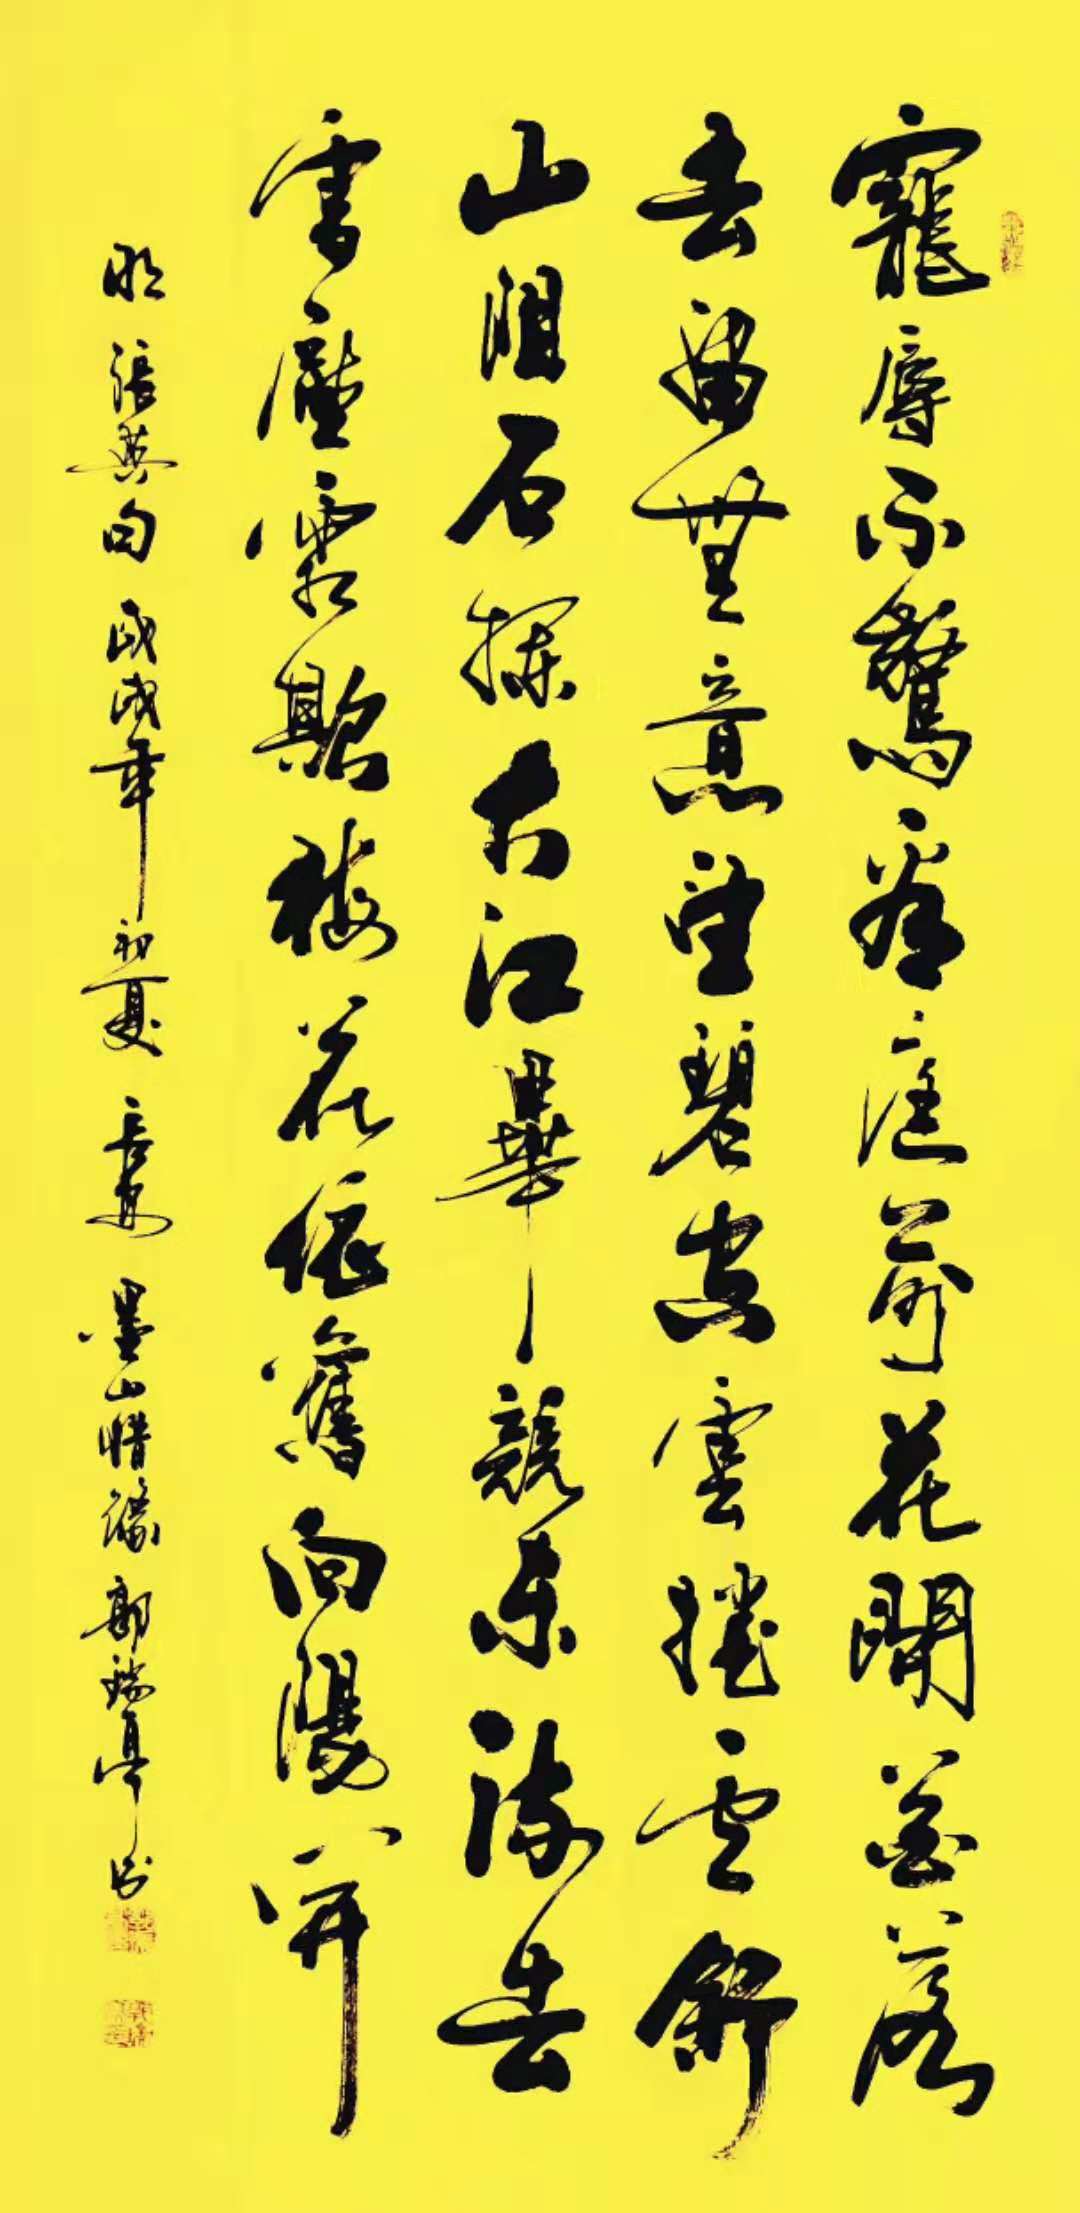 寵辱不驚看庭前花開花落
去留無意望碧空雲捲雲舒
山阻石攔大江畢競東流去
雪壓霜欺梅花依舊向陽開
明張英句戊戌年初夏長安墨山惜緣郭瑞亭書